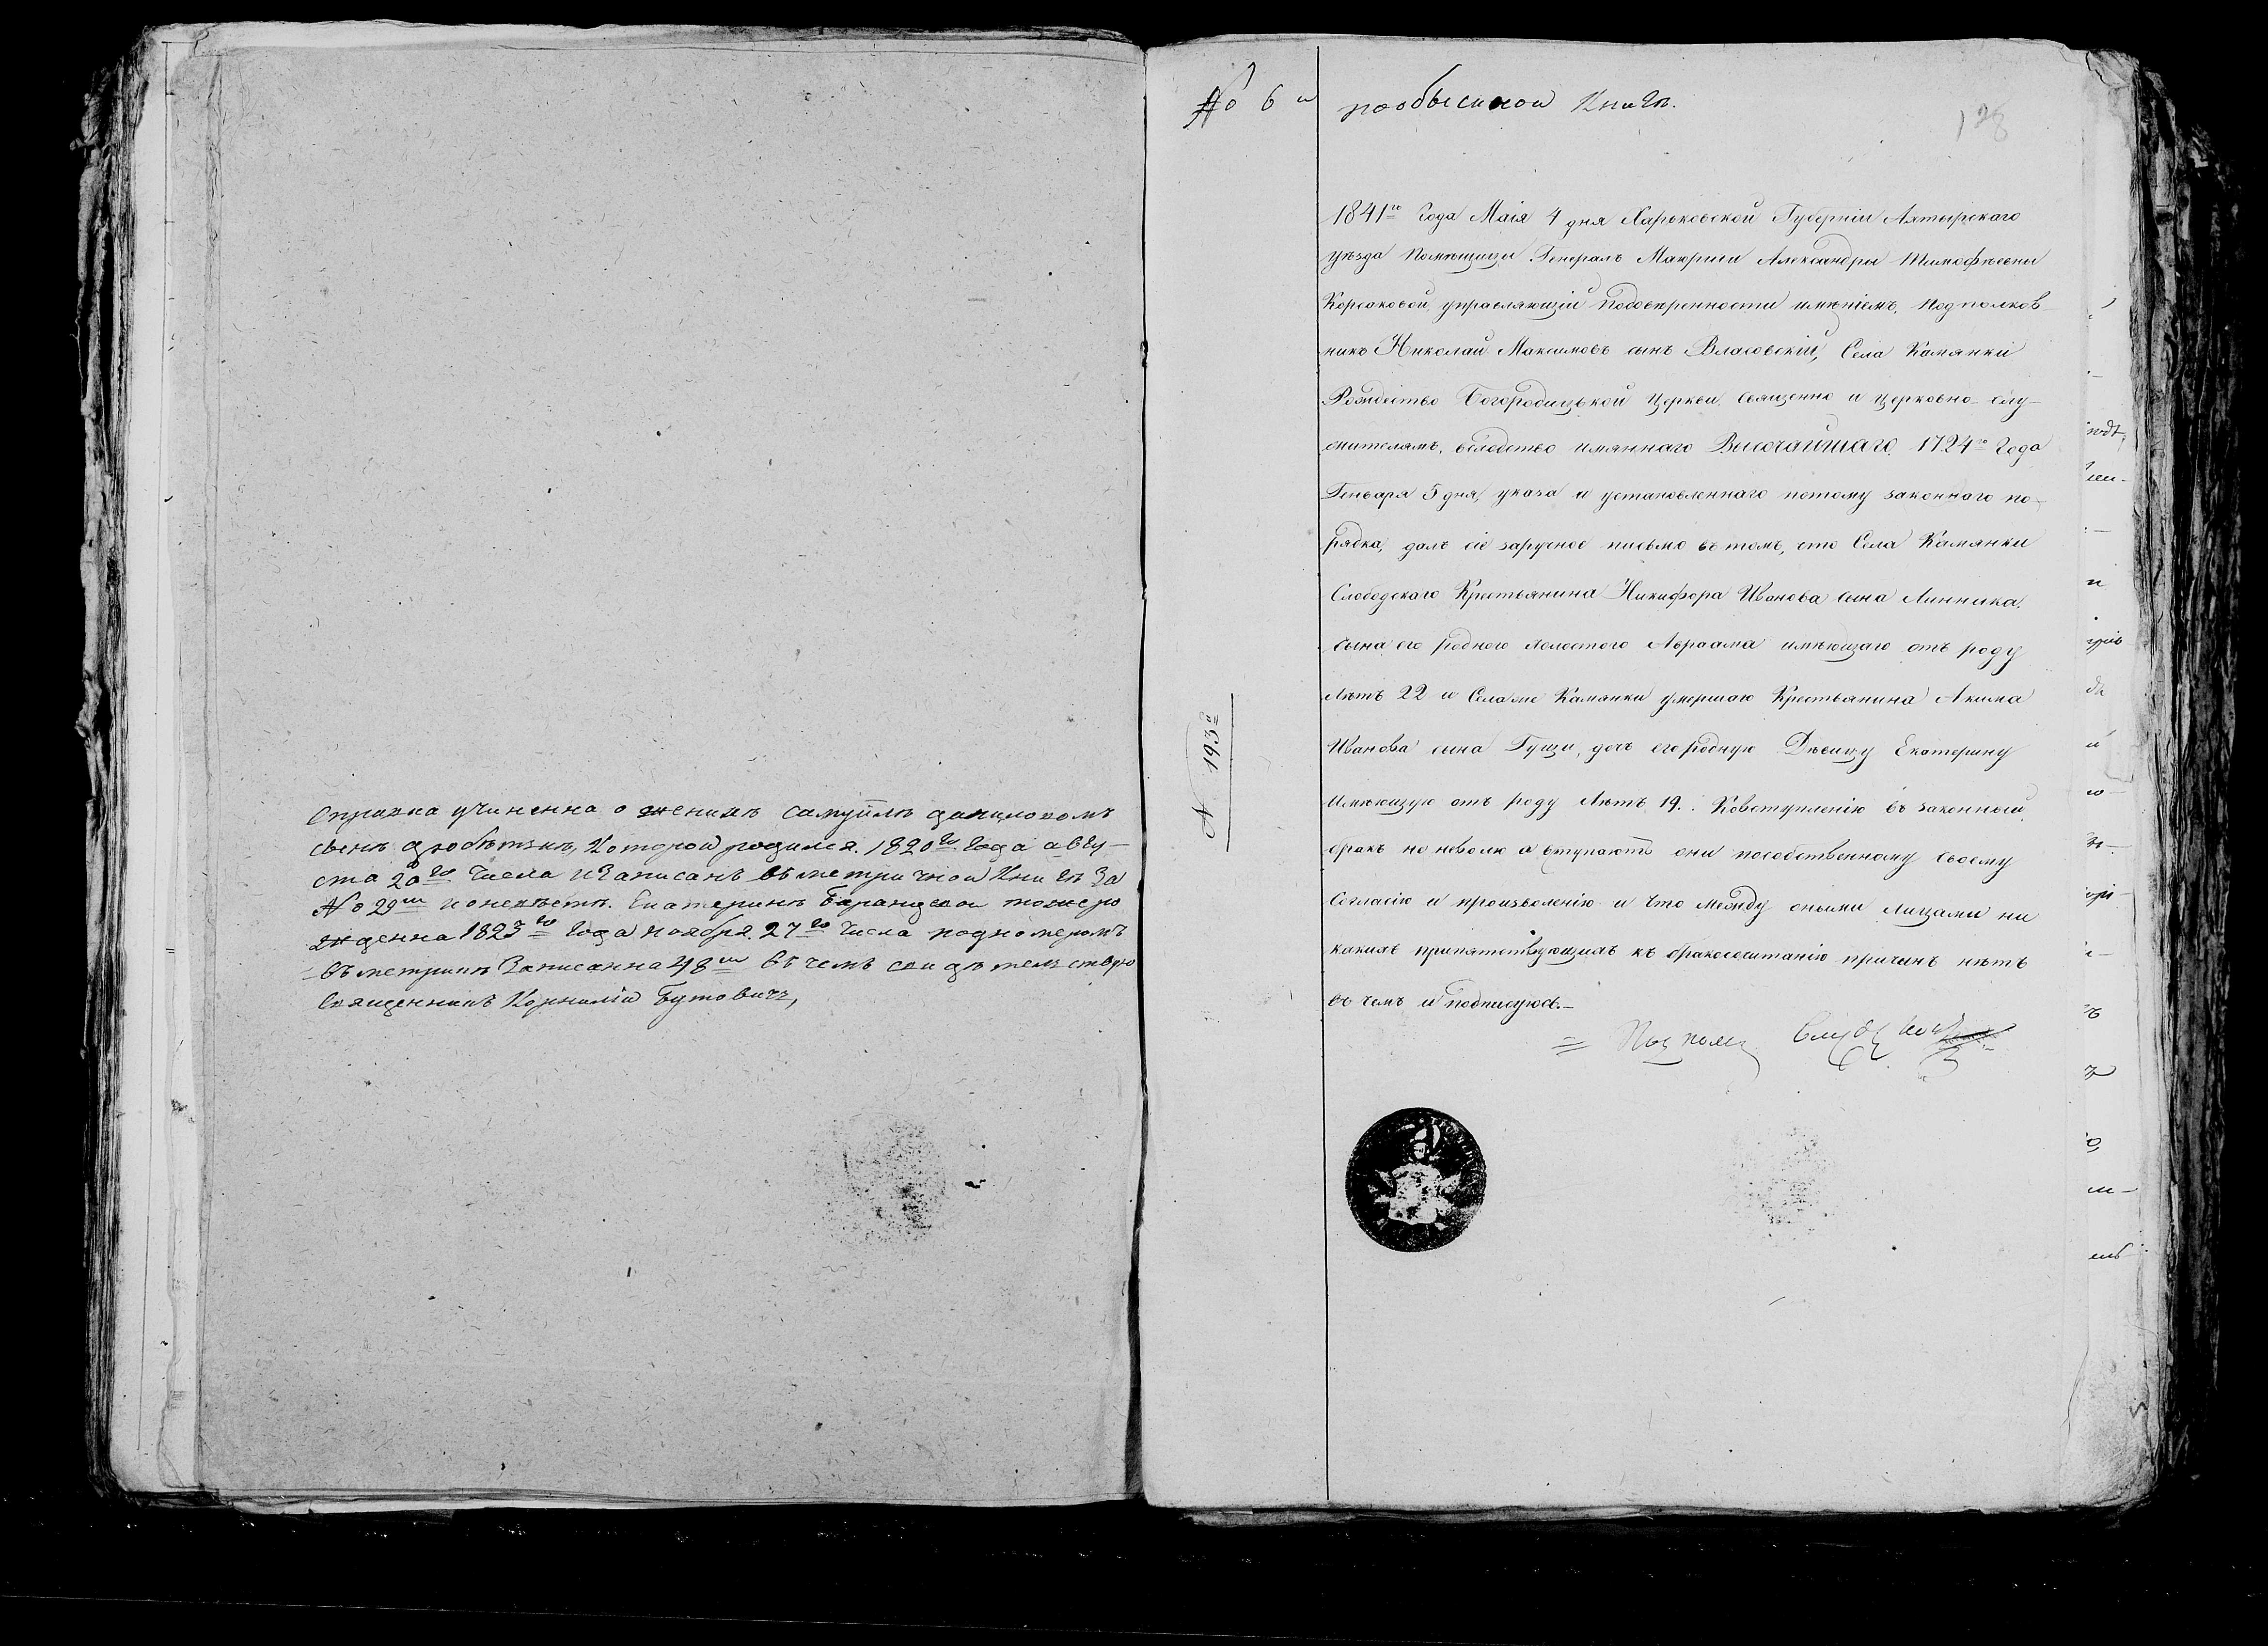 Справка учиненна о женихѣ Самуилѣ даниловомъ
сынѣ дзюбѣтзкѣ, Которой родился. 1820го Года авгу-
ста 20го Числа изаписанъ въ метричной Книгѣ За
№ 29м ионевѣстѣ. Екатеринѣ Баранцевой тожеро
жденна 1823го Года ноября. 27го Числа поднумеромъ
въ метрикѣ Записанна 48м въ чемъ свидѣтелствую
Священникъ Корнилій Бутовичъ,
№ 6й пообыскной Книгѣ.
198
1841го Года Маія 4 дня Харьковской Губерніи Ахтырскаго
уѣзда Помѣщицы Генералъ Маіорши Александры Тимофѣевны
Корсаковой, управляющій подовѣренности имѣніемъ, Подполков
никъ Николай Максимовъ сынъ Власовскій, Села Камянки
Рождество Богородицькой Церкви, священно и церковно-слу-
жителямъ, вслѣдство имяннаго Высочайшаго 1724го Года
Генваря 5 дня, указа и установленнаго потому законнаго по-
рядка, далъ сіе заручное письмо въ томъ, что Села Камянки
Слободскаго Крестьянина Никифора Иванова сына Линника,
сына его роднаго холостого Авраама имѣющаго отъ роду
лѣтъ 22 и Села же Камянки умершаго Крестьянина Акима
Иванова сына Гущи, дочь его родную Дѣвицу Екатерину
имѣющую отъ роду лѣтъ 19. Ковступленію въ законный
бракъ не неволю а вступаютъ они пособственному своему
Согласію и произволенію и что между оными лицами ни
какихъ припятствующихъ къ бракосочитанію причинъ нѣтъ
въ чемъ и подписуюсь.-
№ 193й